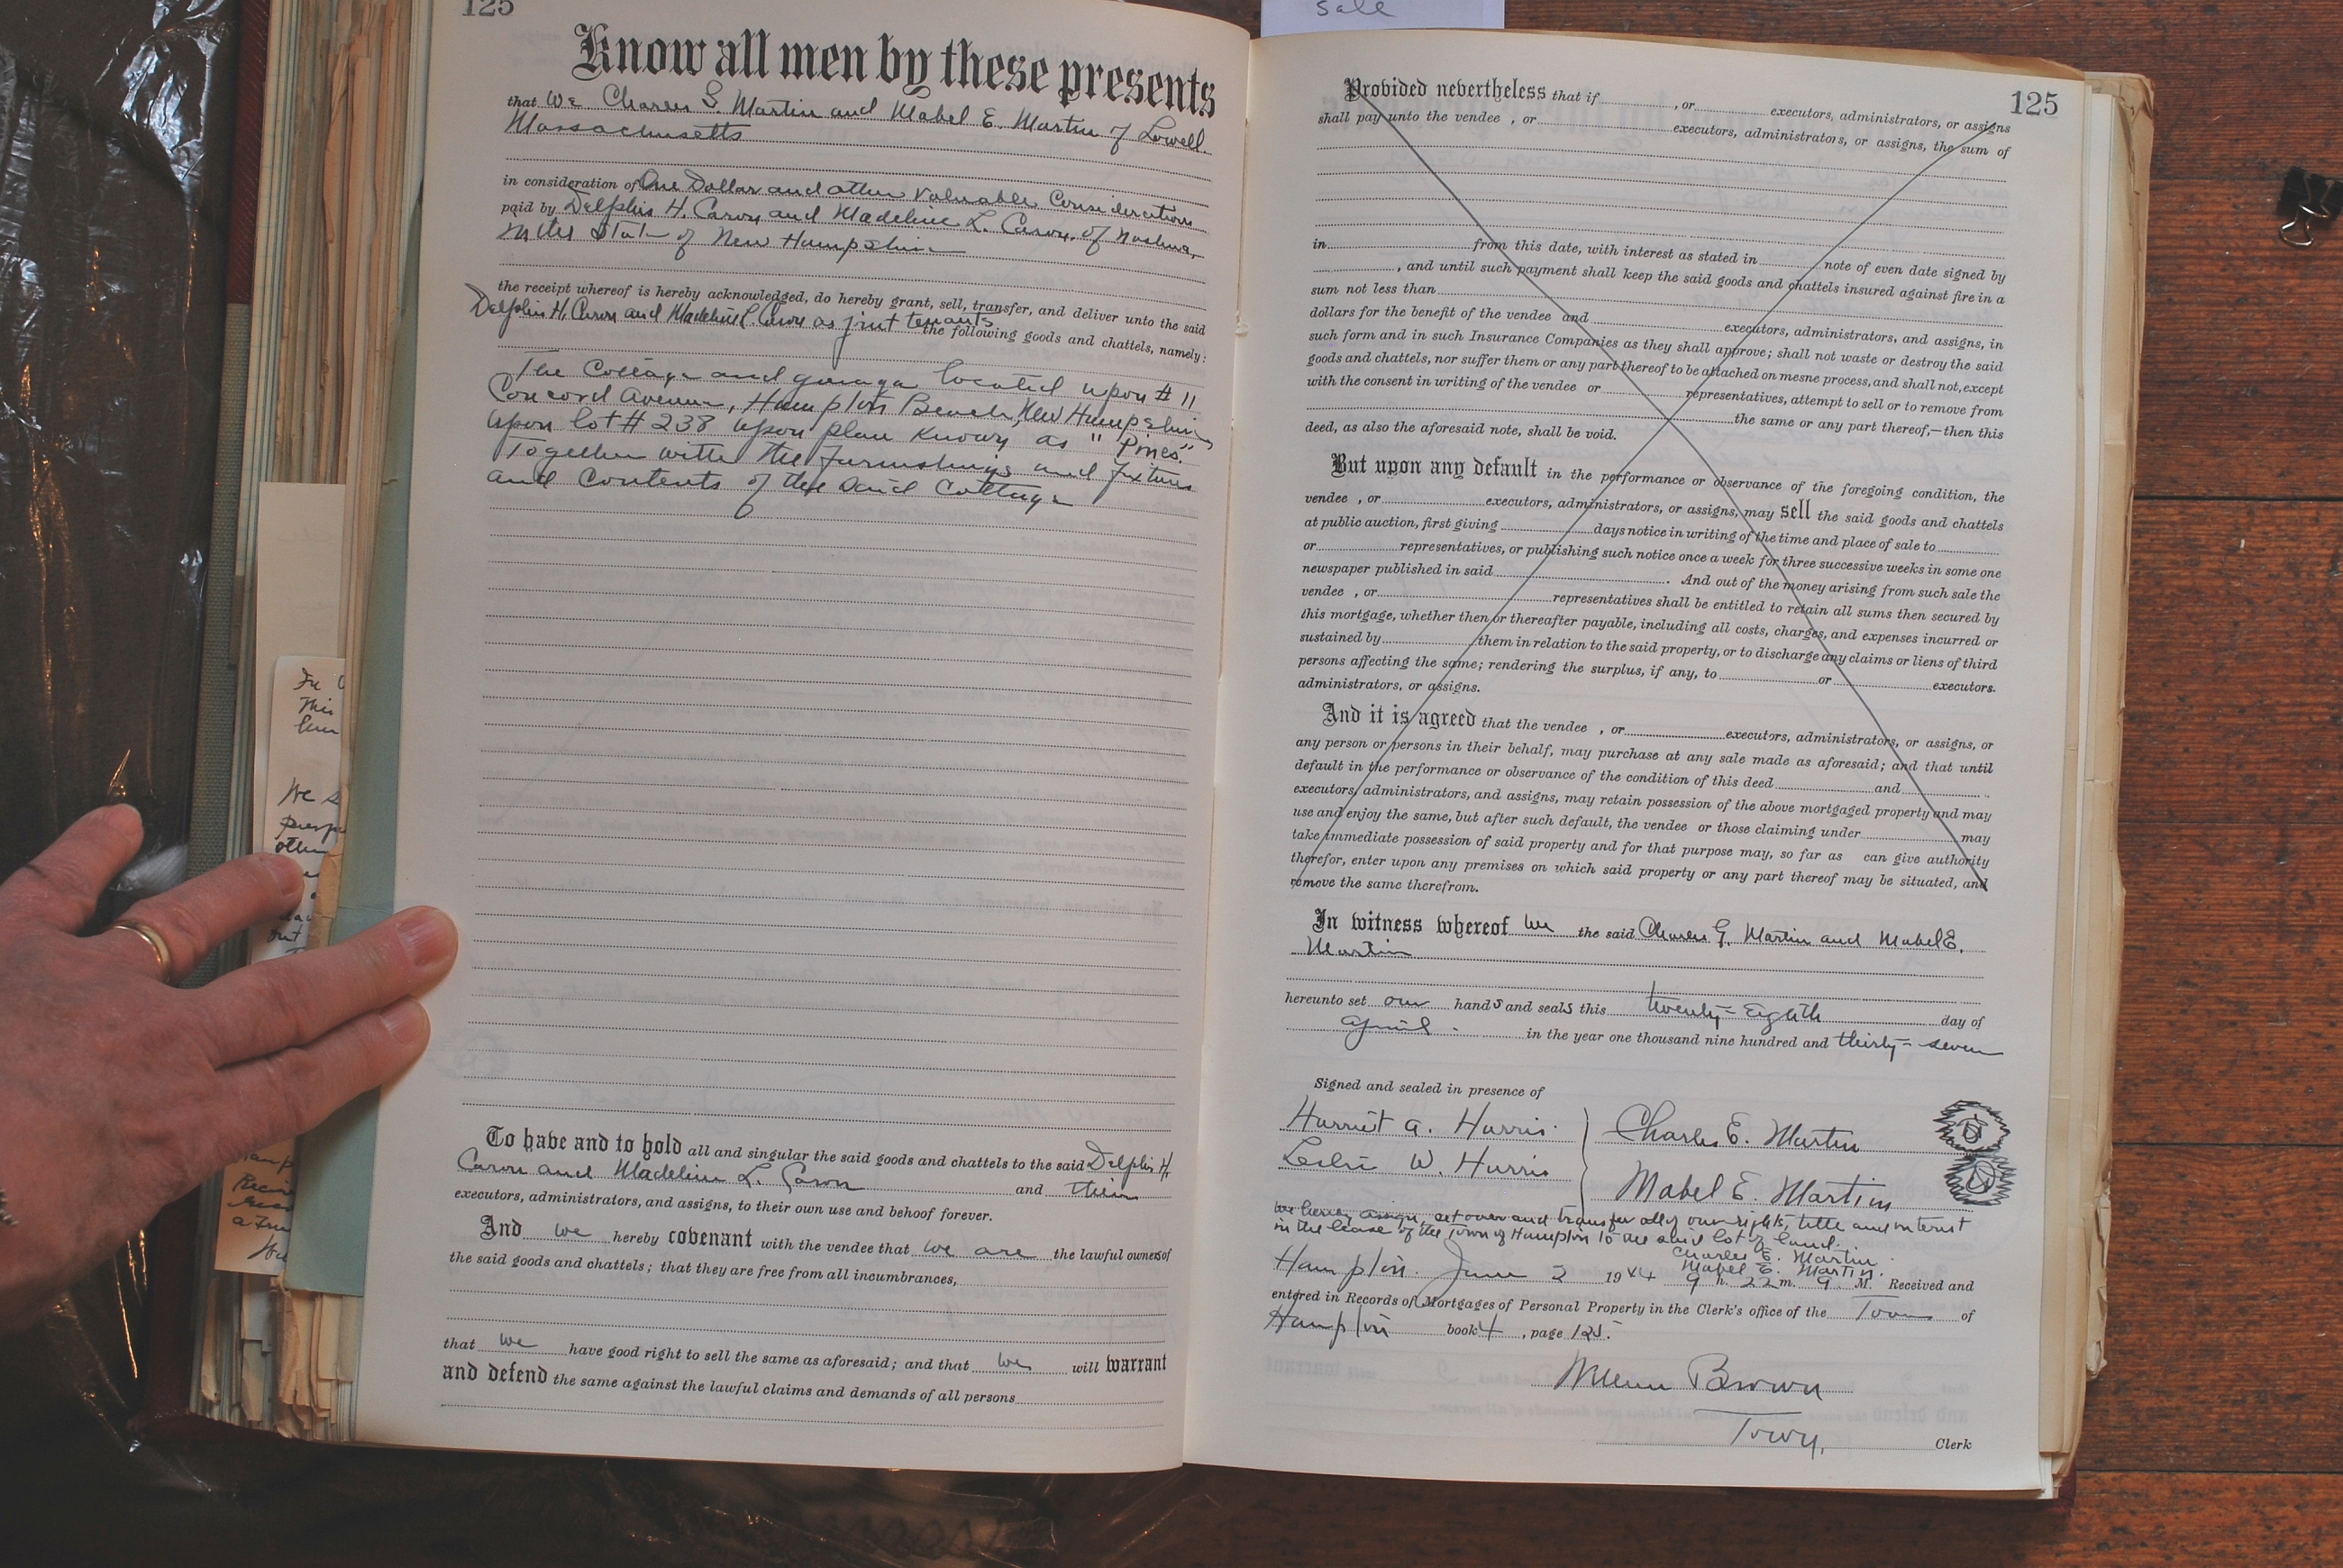 sale
125
Know all men by these presents
that We Charles G. Martin and Mabel E. Martin of Lowell.
Massachusetts
in consideration of One Dollar and other Valuable Considerations
paid by Delphis H. Caron and Madeline L. Caron, of Nashua,
in the State of New Hampshire
the receipt whereof is hereby acknowledged, do hereby grant, sell, transfer, and deliver unto the said
Delphis H. Caron and Madeline L. Caron as joint tenants
the following goods and chattels, namely:
The Cottage and garage located upon # 11
Concord Avenue, Hampton Beach, New Hampshire,
upon lot # 238 upon plan known as "Pines."
Together with the furnishings and fixtures
and Contents of the said Cottage
To have and to hold all and singular the said goods and chattels to the said Delphis H.
Caron and Madeline L. Caron and their
executors, administrators, and assigns, to their own use and behoof forever.
And we hereby covenant with the vendee that we are the lawful owners of
the said goods and chattels; that they are free from all incumbrances,
that we have good right to sell the same as aforesaid; and that we will warrant
and defend the same against the lawful claims and demands of all persons
125
Provided nevertheless that if , or executors, administrators, or assigns
shall pay unto the vendee , or executors, administrators, or assigns, the sum of
in from this date, with interest as stated in note of even date signed by
, and until such payment shall keep the said goods and chattels insured against fire in a
sum not less than
dollars for the benefit of the vendee and executors, administrators, and assigns, in
such form and in such Insurance Companies as they shall approve; shall not waste or destroy the said
goods and chattels, nor suffer them or any part thereof to be attached on mesne process, and shall not, except
with the consent in writing of the vendee or representatives, attempt to sell or to remove from
the same or any part thereof,—then this
deed, as also the aforesaid note, shall be void.
But upon any default in the performance or observance of the foregoing condition, the
vendee , or executors, administrators, or assigns, may sell the said goods and chattels
at public auction, first giving days notice in writing of the time and place of sale to
or representatives, or publishing such notice once a week for three successive weeks in some one
newspaper published in said . And out of the money arising from such sale the
vendee , or representatives shall be entitled to retain all sums then secured by
this mortgage, whether then or thereafter payable, including all costs, charges, and expenses incurred or
sustained by them in relation to the said property, or to discharge any claims or liens of third
persons affecting the same; rendering the surplus, if any, to or executors.
administrators, or assigns.
And it is agreed that the vendee , or executors, administrators, or assigns, or
any person or persons in their behalf, may purchase at any sale made as aforesaid; and that until
default in the performance or observance of the condition of this deed and
executors, administrators, and assigns, may retain possession of the above mortgaged property and may
use and enjoy the same, but after such default, the vendee or those claiming under may
take immediate possession of said property and for that purpose may, so far as can give authority
therefor, enter upon any premises on which said property or any part thereof may be situated, and
remove the same therefrom.
In witness whereof we the said Charles G. Martin and Mabel E.
Martin
hereunto set our hands and seals this twenty-Eighth day of
April in the year one thousand nine hundred and thirty-seven
Signed and sealed in presence of
Harriet A. Harris.
Charles E. Martin
Leslie W. Harris
Mabel E. Martin
we hereby assign, set over and transfer all of our rights, title and interest
in the lease of the Town of Hampton to the said lot of land.
Charles E. Martin
Mabel E. Martin.
Hampton. June 2 1944 9 h. 22 m. 9 M. Received and
entered in Records of Mortgages of Personal Property in the Clerk's office of the Town of
Hampton book 4 , page 125.
Brown
Town, Clerk